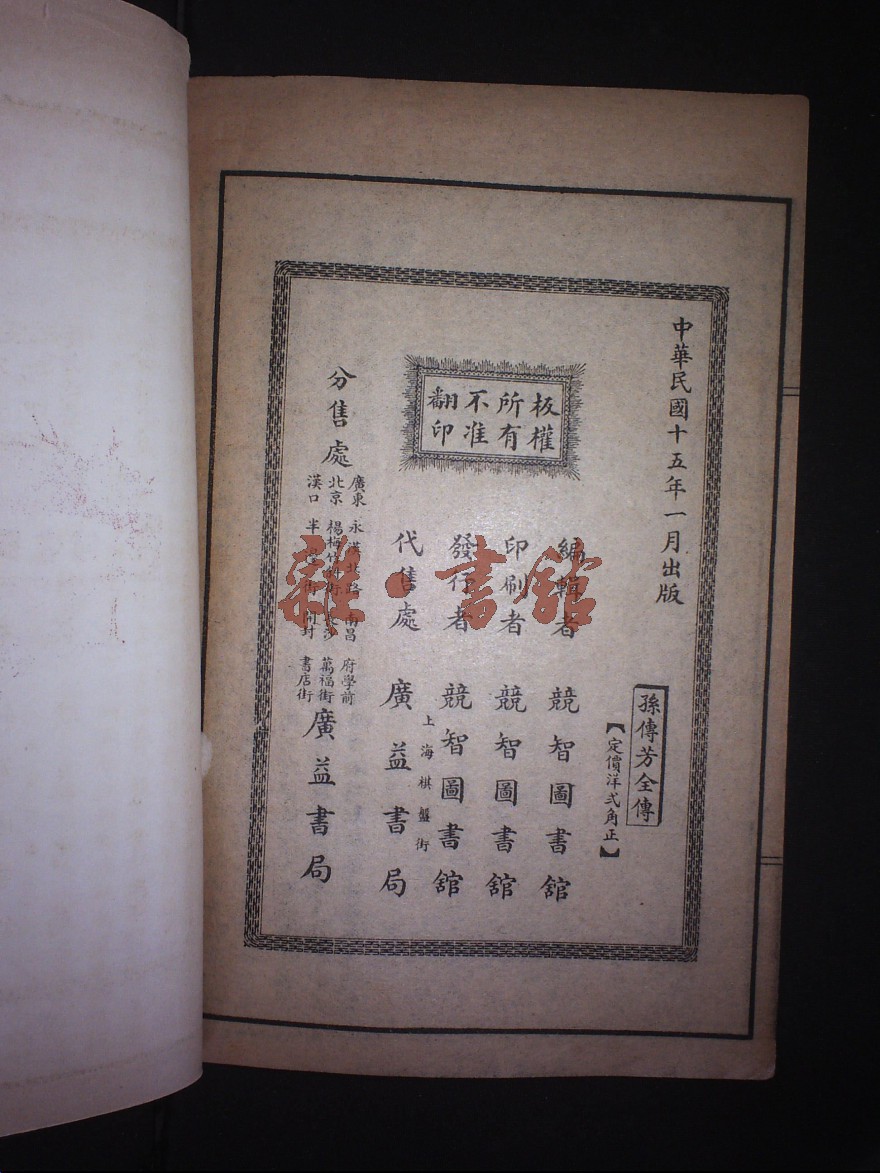 中華民國十五年一月出版
孫傳芳全傳
【定價洋弍角正】
板權
所有
不准
翻印
編輯者 競智圖書舘
印刷者 競智圖書舘
發行者 競智圖書舘
上海棋盤街
代售處 廣益書局
分售處
廣東 永漢北路 南昌 府學前
北京 楊梅竹斜街 長沙 萬福街
漢口 半 街 開封 書店街
廣益書局
雜·書舘